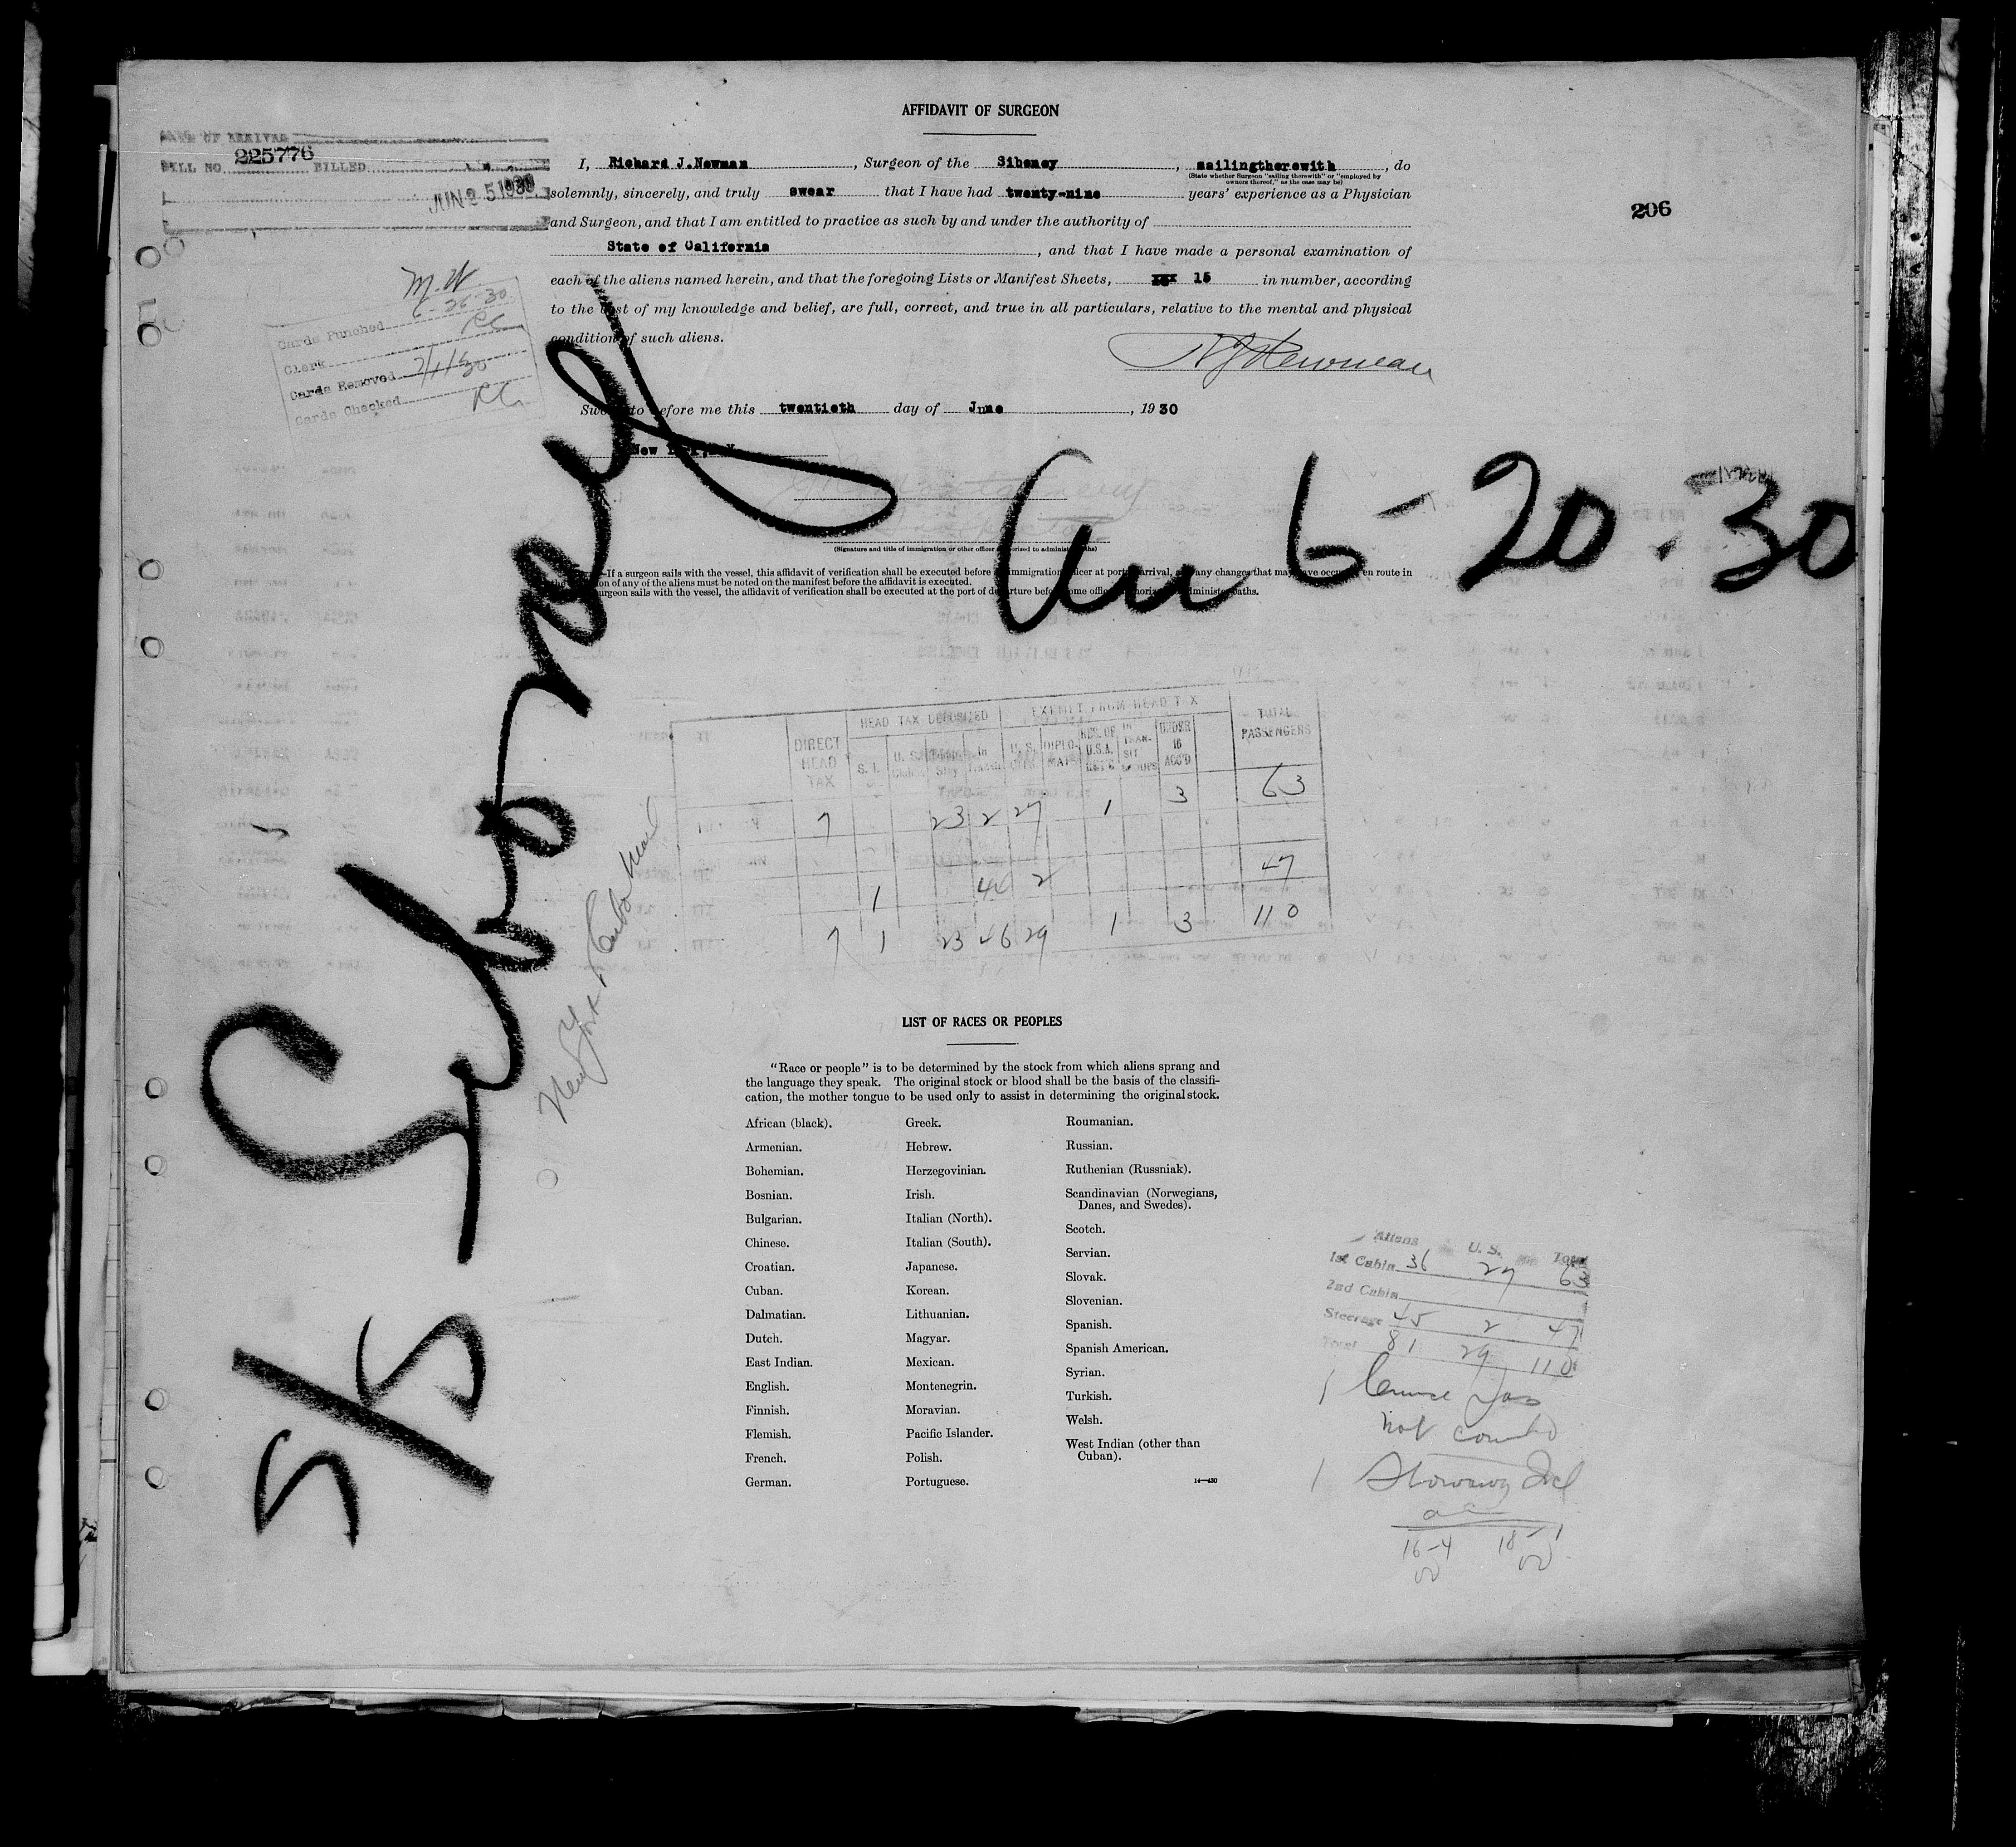 AFFIDAVIT OF SURGEON
DATE OF ARRIVAL
BILL NO. 225776 BILLED
JUN 25 1930
206
I, Richard J.Newman, Surgeon of the Siboney, sailingtherewith, do
(State whether Surgeon "sailing therewith" or "employed by
owners thereof," as the case may be)
solemnly, sincerely, and truly swear that I have had twenty-nine years' experience as a Physician
and Surgeon, and that I am entitled to practice as such by and under the authority of
State of California, and that I have made a personal examination of
each of the aliens named herein, and that the foregoing Lists or Manifest Sheets, 15 in number, according
to the best of my knowledge and belief, are full, correct, and true in all particulars, relative to the mental and physical
condition of such aliens.
RJ Newman
M.W
Cards Punched 6-26-30
Clerk RG
Cards Removed
Cards Checked RG
Sworn to before me this twentieth day of June, 1930
New York, N.Y.
Inspector
(Signature and title of immigration or other officer authorized to administer oaths)
If a surgeon sails with the vessel, this affidavit of verification shall be executed before immigration officer at port arrival, any changes that may have occurred en route in
of any of the aliens must be noted on the manifest before the affidavit is executed.
surgeon sails with the vessel, the affidavit of verification shall be executed at the port of departure before some officer authorized administer oaths.
S/S Siboney
Arr 6-20-30
New York & Cuba Mail
HEAD TAX DEPOSITED EXEMPT FROM HEAD TAX
DIRECT HEAD TAX S. I. U. S. In Transit U. S. DIPLOMATS RES. OF U.S.A. IN TRANSIT GROUPS UNDER 16 ACC'D TOTAL PASSENGERS
7 23 2 27 1 3 63
1 44 2 47
7 1 23 46 29 1 3 110
LIST OF RACES OR PEOPLES
"Race or people" is to be determined by the stock from which aliens sprang and
the language they speak. The original stock or blood shall be the basis of the classifi-
cation, the mother tongue to be used only to assist in determining the original stock.
African (black).
Armenian.
Bohemian.
Bosnian.
Bulgarian.
Chinese.
Croatian.
Cuban.
Dalmatian.
Dutch.
East Indian.
English.
Finnish.
Flemish.
French.
German.
Greek.
Hebrew.
Herzegovinian.
Irish.
Italian (North).
Italian (South).
Japanese.
Korean.
Lithuanian.
Magyar.
Mexican.
Montenegrin.
Moravian.
Pacific Islander.
Polish.
Portuguese.
Roumanian.
Russian.
Ruthenian (Russniak).
Scandinavian (Norwegians,
Danes, and Swedes).
Scotch.
Servian.
Slovak.
Slovenian.
Spanish.
Spanish American.
Syrian.
Turkish.
Welsh.
West Indian (other than
Cuban).
14—430
Aliens U. S. Total
1st Cabin 36 27 63
2nd Cabin
Steerage 45 2 47
Total 81 29 110
1
not counted
1 Stowaway Incl
16-4 18-1